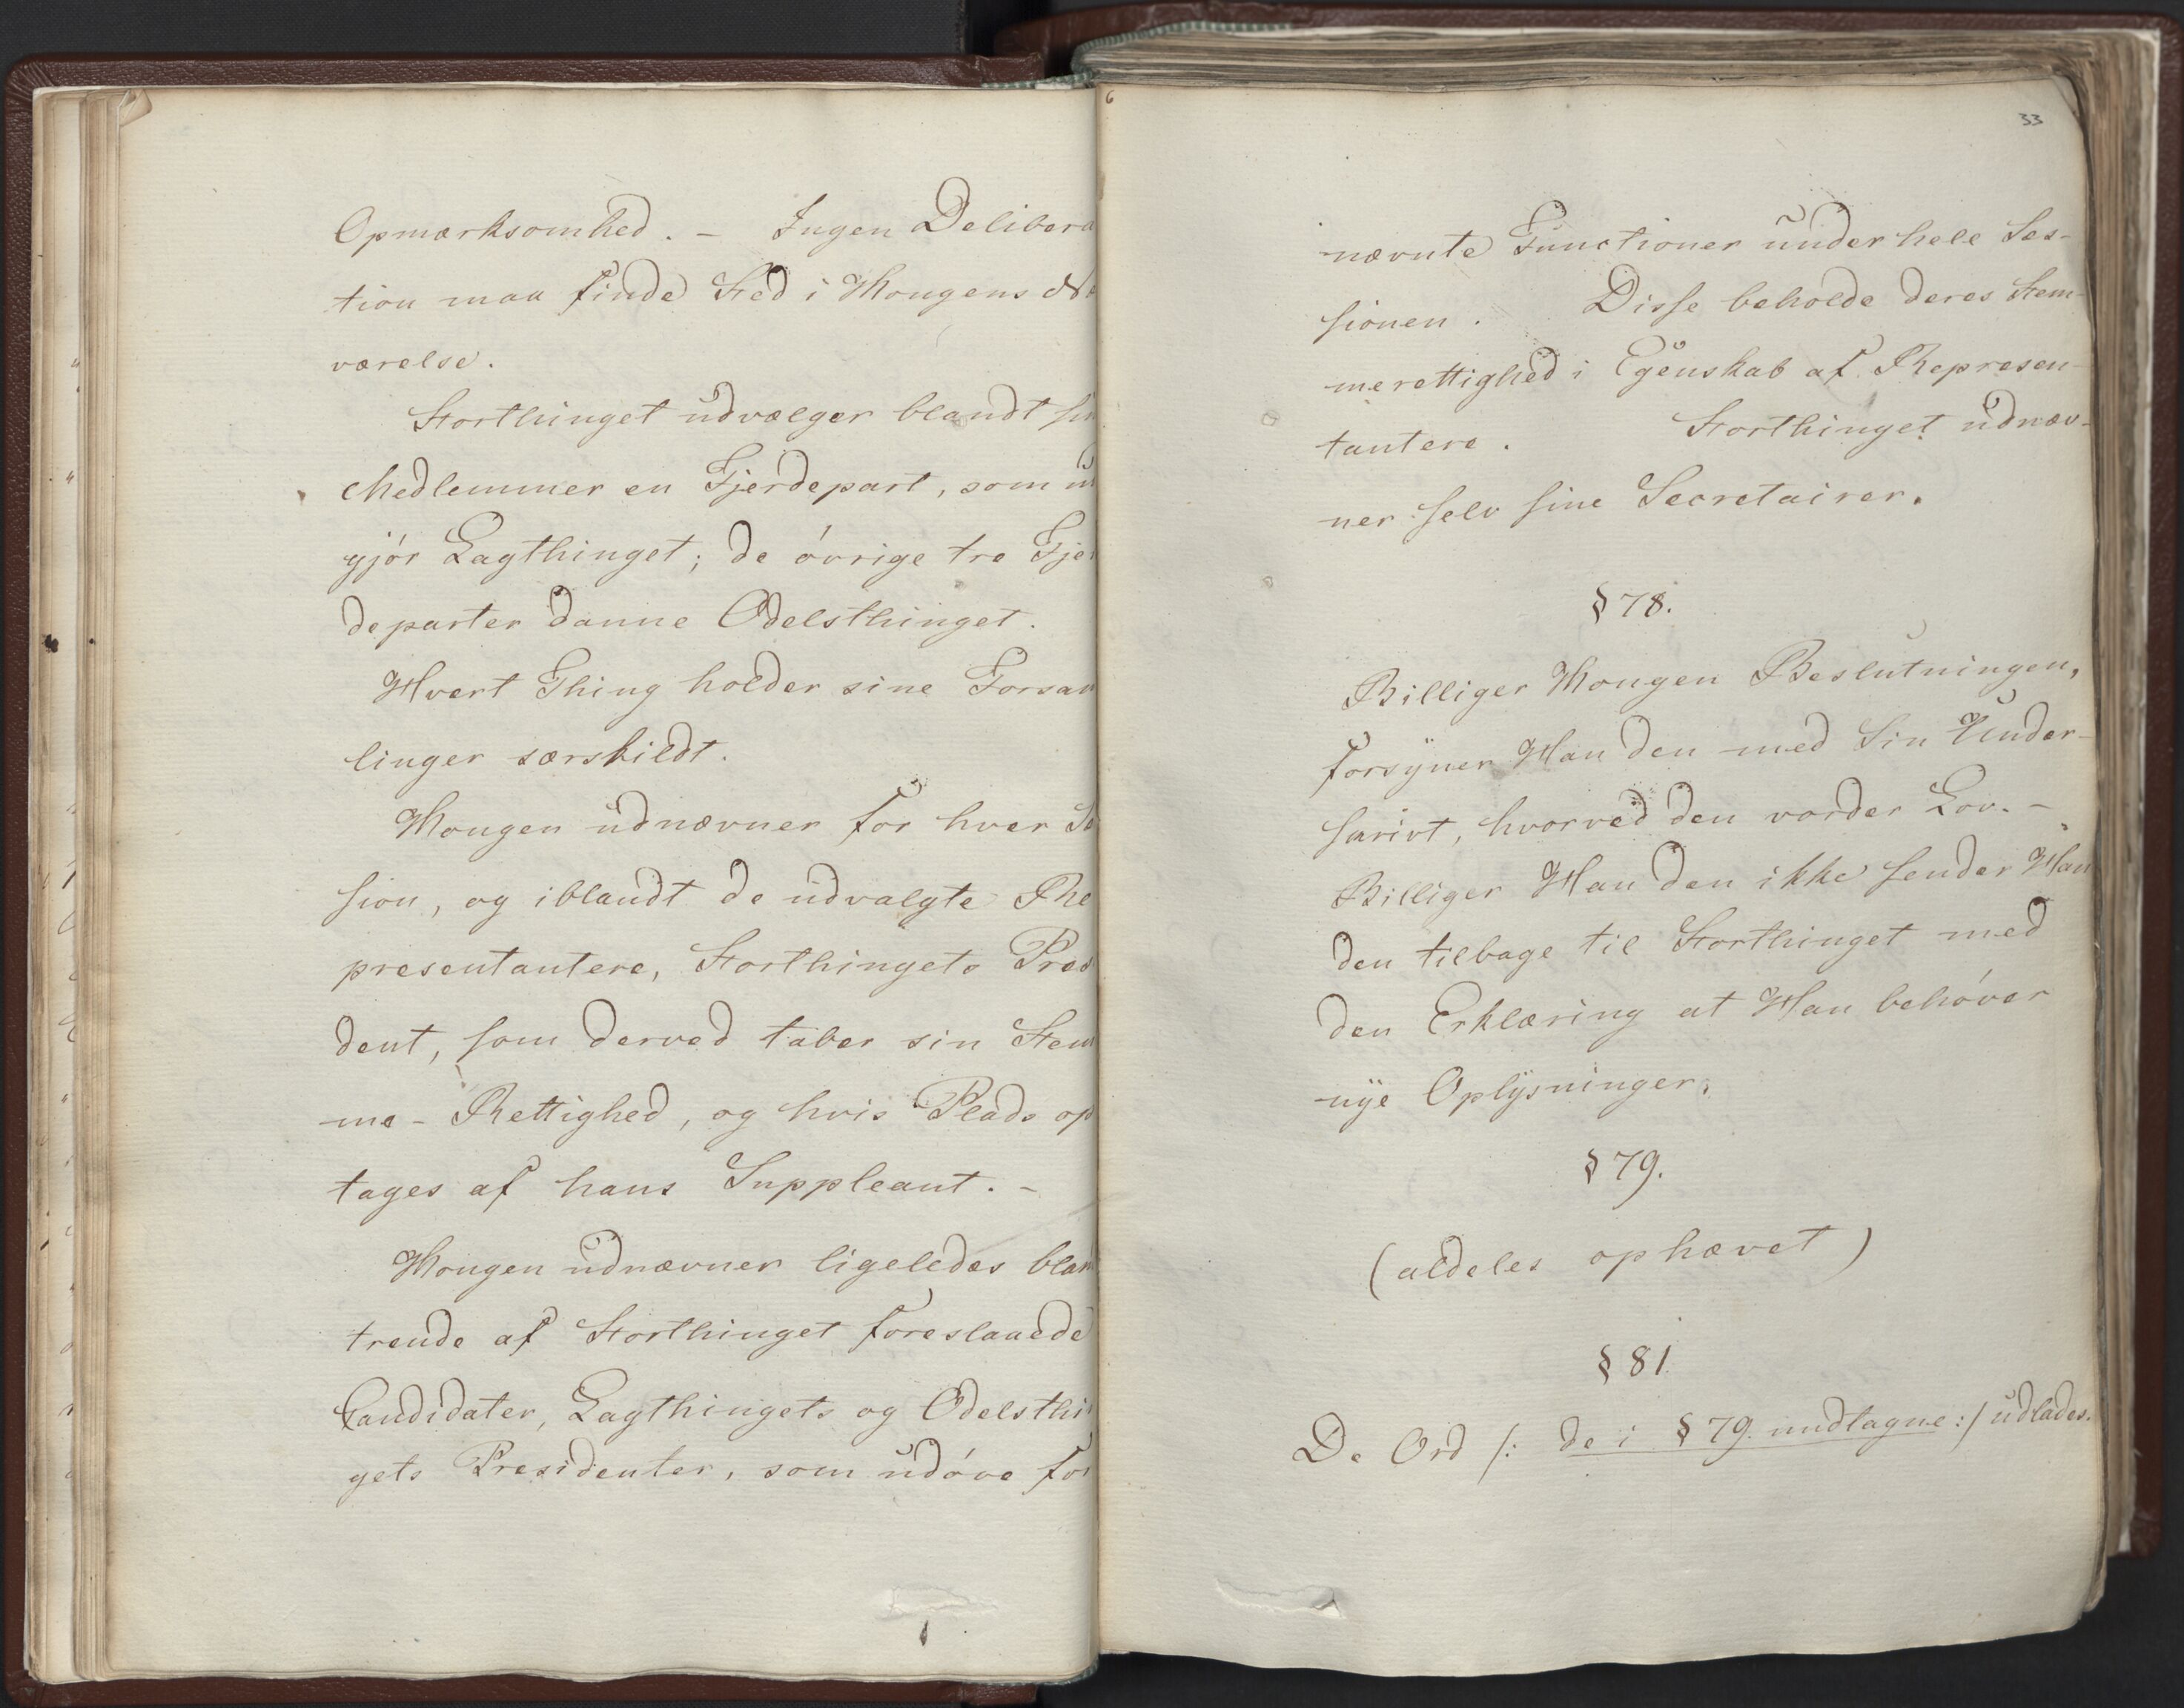 Opmærksomhed. - Ingen Delibera
tion maa finde Sted i Kongens Næ
værelse.
Storthinget udvælger blandt sin
Medlemmer en Fjerdepart, som u
gjör Lagthinget; de övrige tre Fjer
departer danne Odelsthinget.
Hvert Thing holder sine Forsam
linger særskildt.
Kongen udnævner for hver Se
sion, og iblandt de udvalgte Re
presentantere, Storthingets Præs
dent, som derved taber sin Stem
me-Rettighed, og hvis Plads op
tages af hans Suppleant. -
Kongen udnævner ligeledes blan
trende af Storthinget foreslaaede
Candidater, Lagthingets og Odelsthin
gets Presidenter, som udöve for
6
33
nævnte Functioner under hele Ses-
sionen. Disse beholde deres Stem-
merettighed i Egenskab af Represen-
tantere. Storthinget udnæv-
ner selv sine Secretairer.
§ 78.
Billiger Kongen Beslutningen,
forsyner Han den med Sin Under-
skrivt, hvorved den vorder Lov. -
Billiger Han den ikke sender Han
den tilbage til Storthinget med
den Erklæring at Han behöver
nye Oplysninger.
§ 79.
(aldeles ophævet)
§ 81.
De Ord /: de i § 79. undtagne :/ udlades.